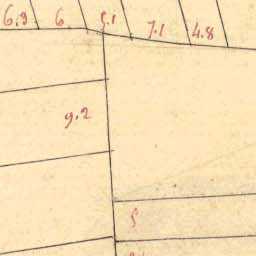 6.9 6 5.1 7.1 4.8
9.2
5